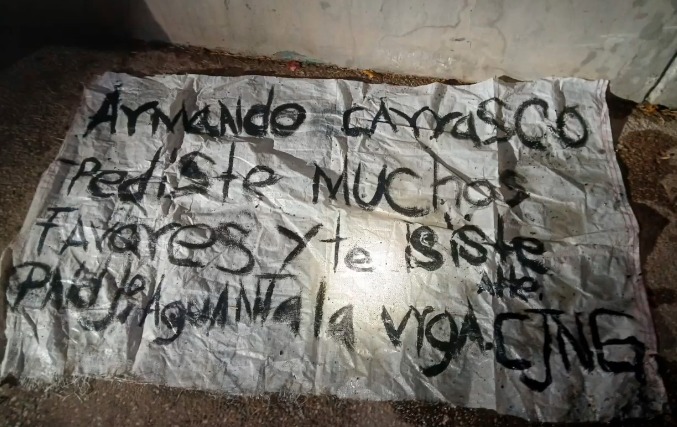 ArmANdo cArraSCO
Pediste MUChos
FAvores y te siste
Pndjo AguANta la vrgA. Atte. CJNG